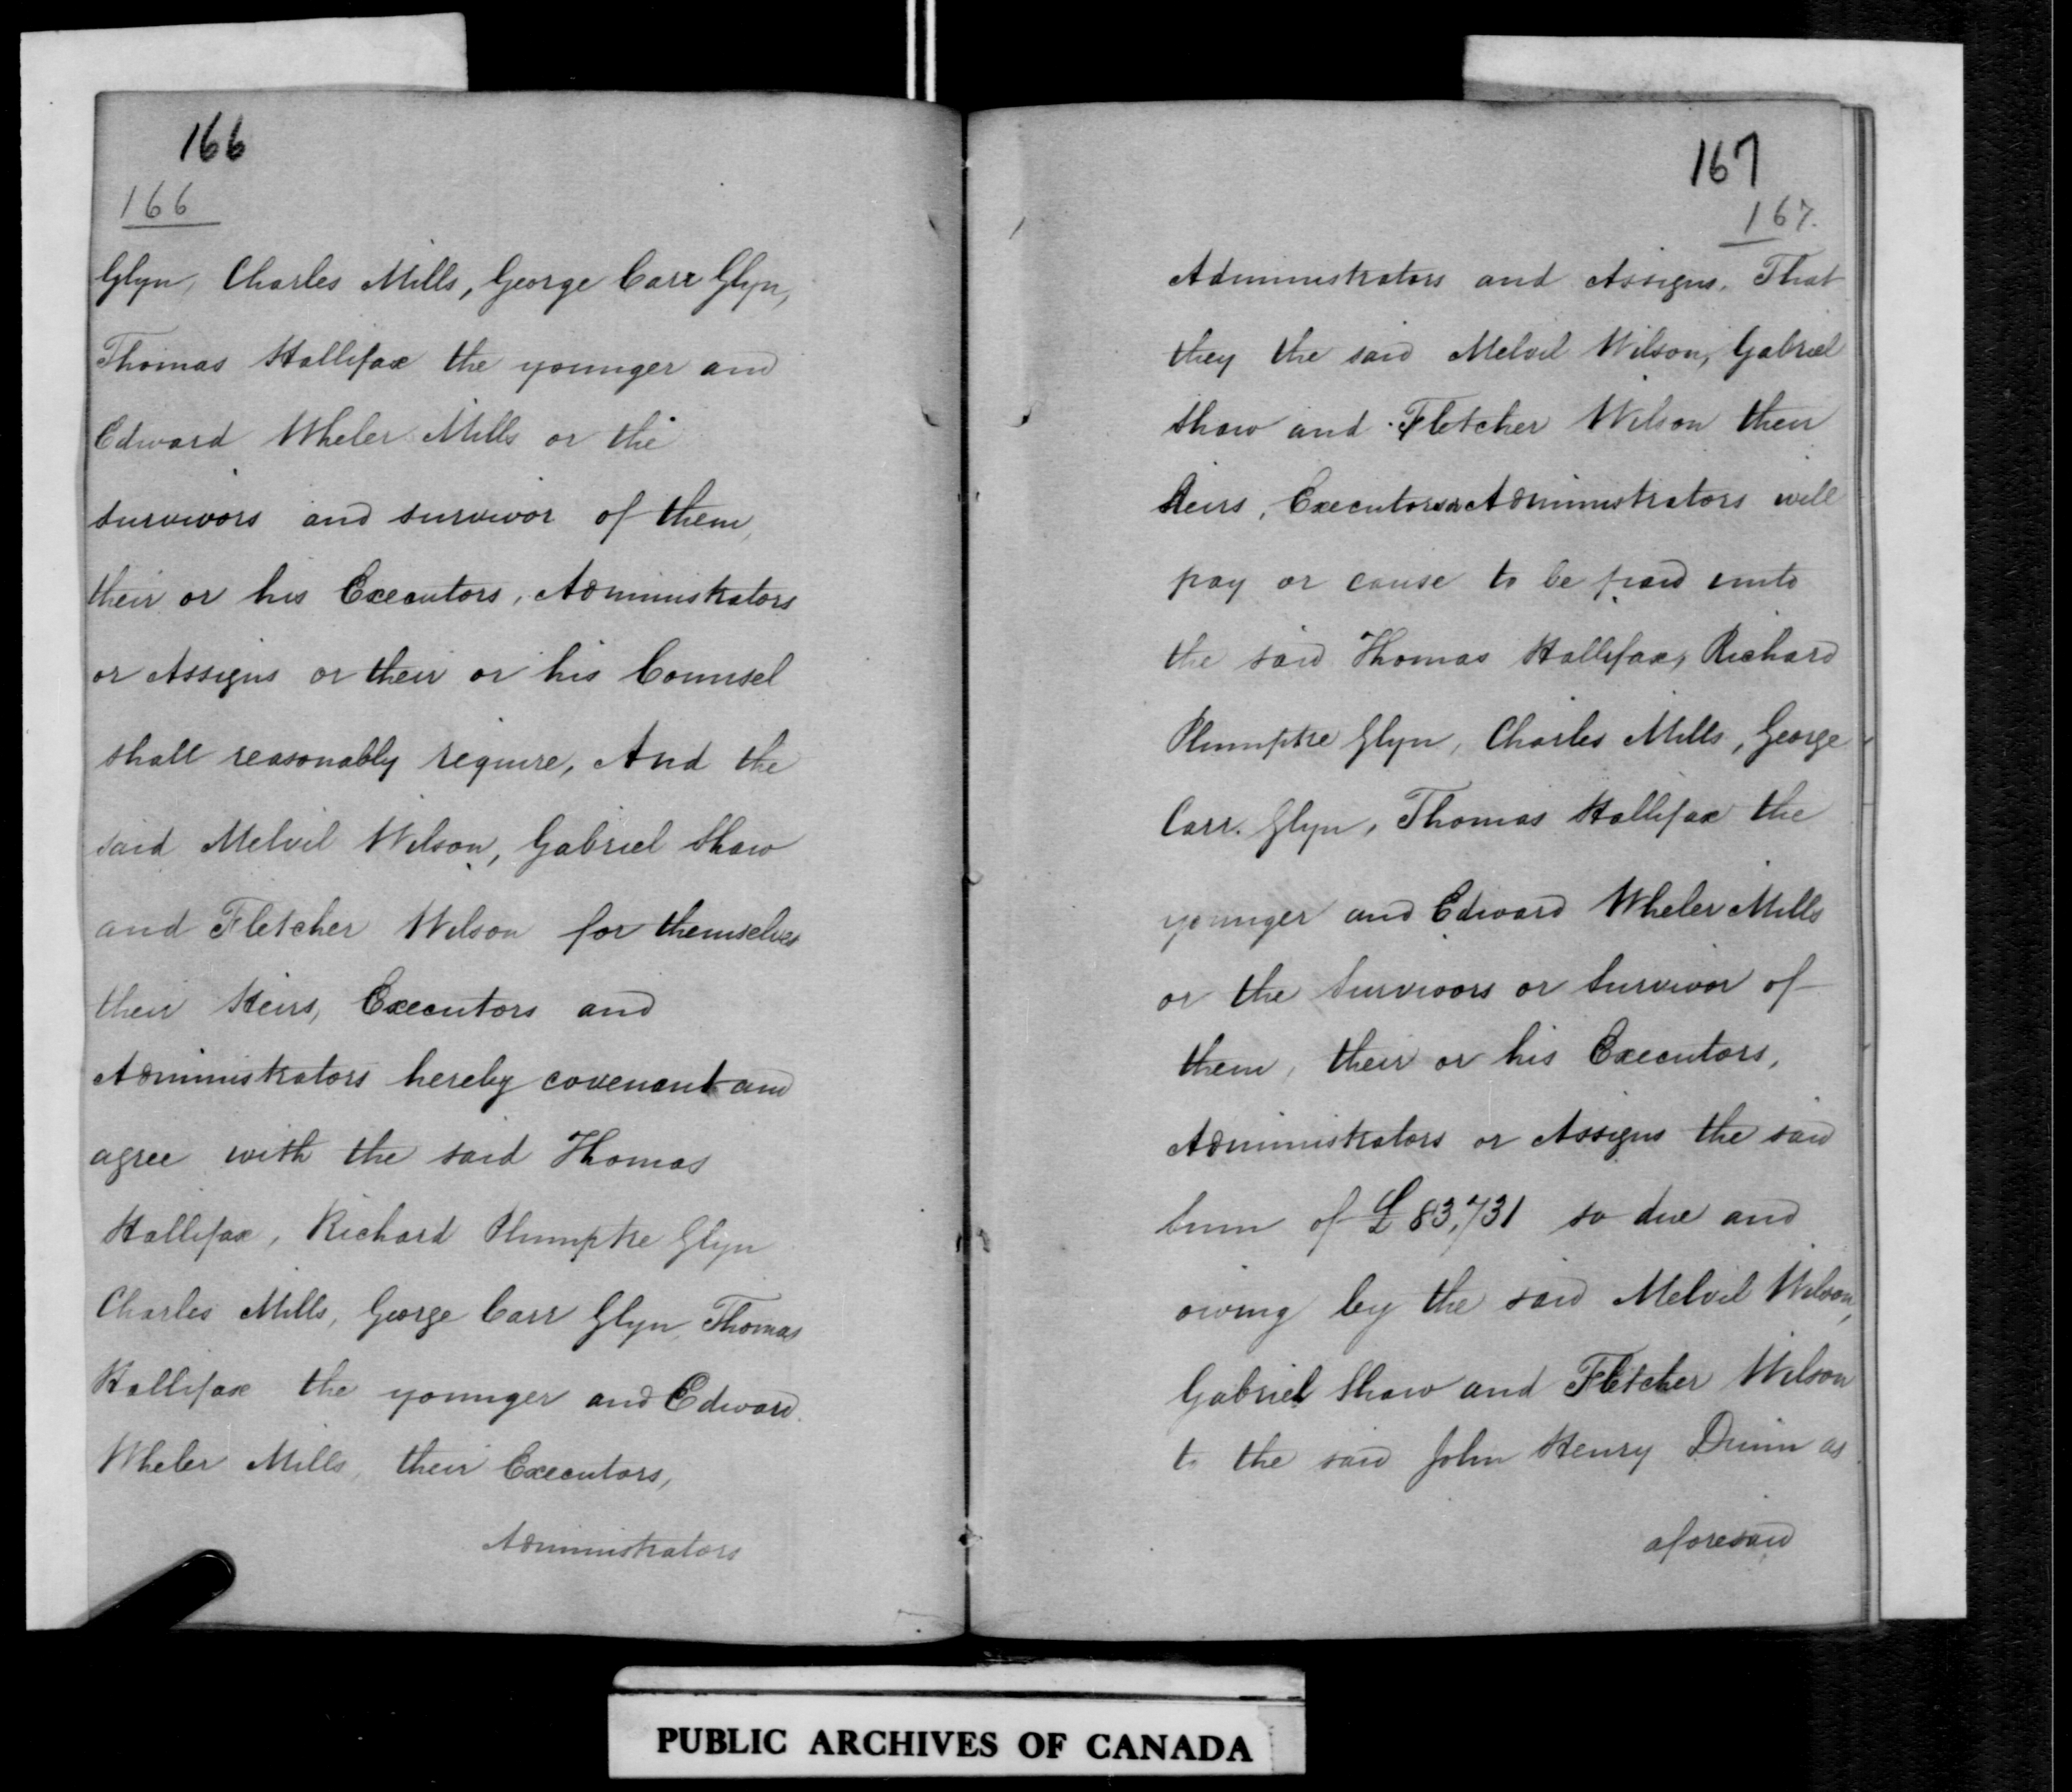 166
166
Glyn, Charles Mills, George Carr Glyn,
Thomas Hallifax the younger and
Edward Wheler Mills or the
survivors and survivor of them,
their or his Executors, Administrators
or Assigns or their or his Counsel
shall reasonably require, And the
said Melvil Wilson, Gabriel Shaw
and Fletcher Wilson for themselves
their Heirs, Executors and
Administrators hereby covenant and
agree with the said Thomas
Hallifax, Richard Plumptre Glyn
Charles Mills, George Carr Glyn, Thomas
Hallifax the younger and Edward
Wheler Mills, their Executors,
Administrators
167
167.
Administrators and Assigns. That
they the said Melvil Wilson, Gabriel
Shaw and Fletcher Wilson their
Heirs, Executors or Administrators will
pay or cause to be paid unto
the said Thomas Hallifax, Richard
Plumptre Glyn, Charles Mills, George
Carr. Glyn, Thomas Hallifax the
younger and Edward Wheler Mills
or the Survivors or Survivor of
them, their or his Executors,
Administrators or Assigns the said
Sum of £83,731 so due and
owing by the said Melvil Wilson,
Gabriel Shaw and Fletcher Wilson
to the said John Henry Dunn as
aforesaid
PUBLIC ARCHIVES OF CANADA